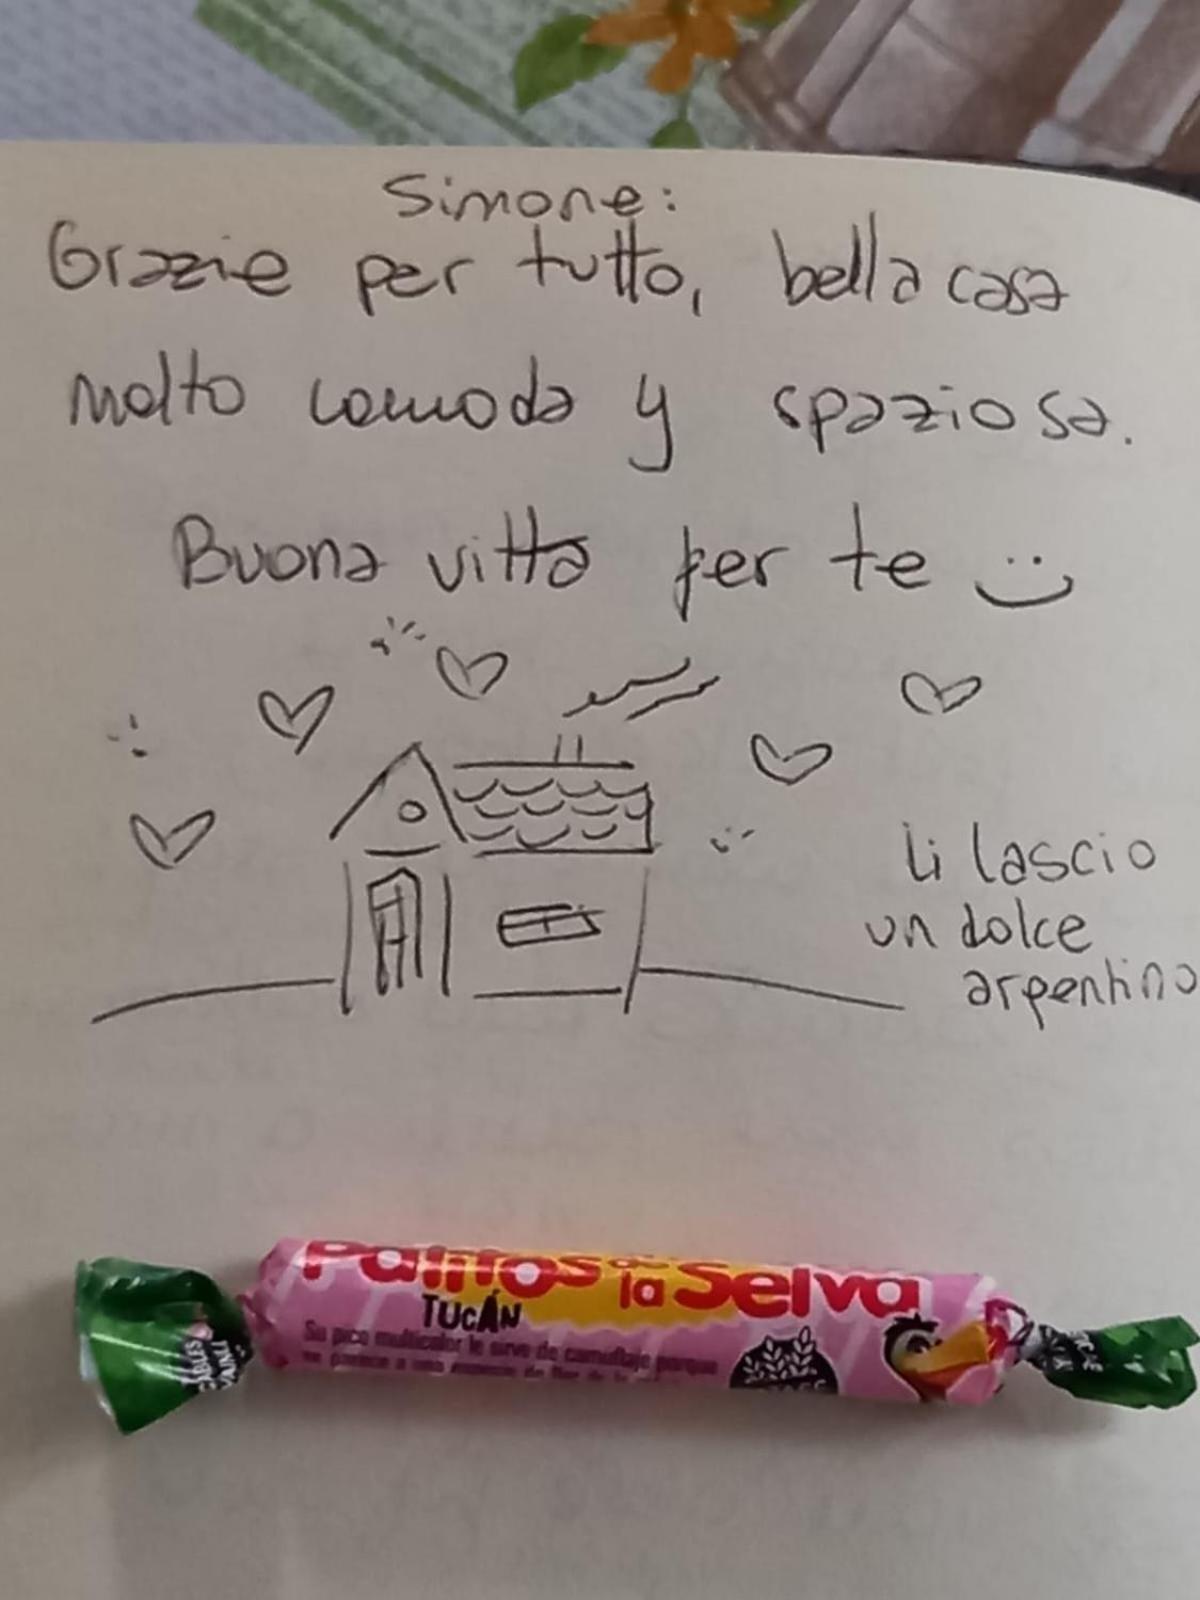 Simone:
Grazie per tutto, bella casa
molto comoda y spaziosa.
Buona vitta per te :)
li lascio
un dolce
argentino
Palitos de la Selva
TUCÁN
Su pico multicolor le sirve de camuflaje porque
se parece a una